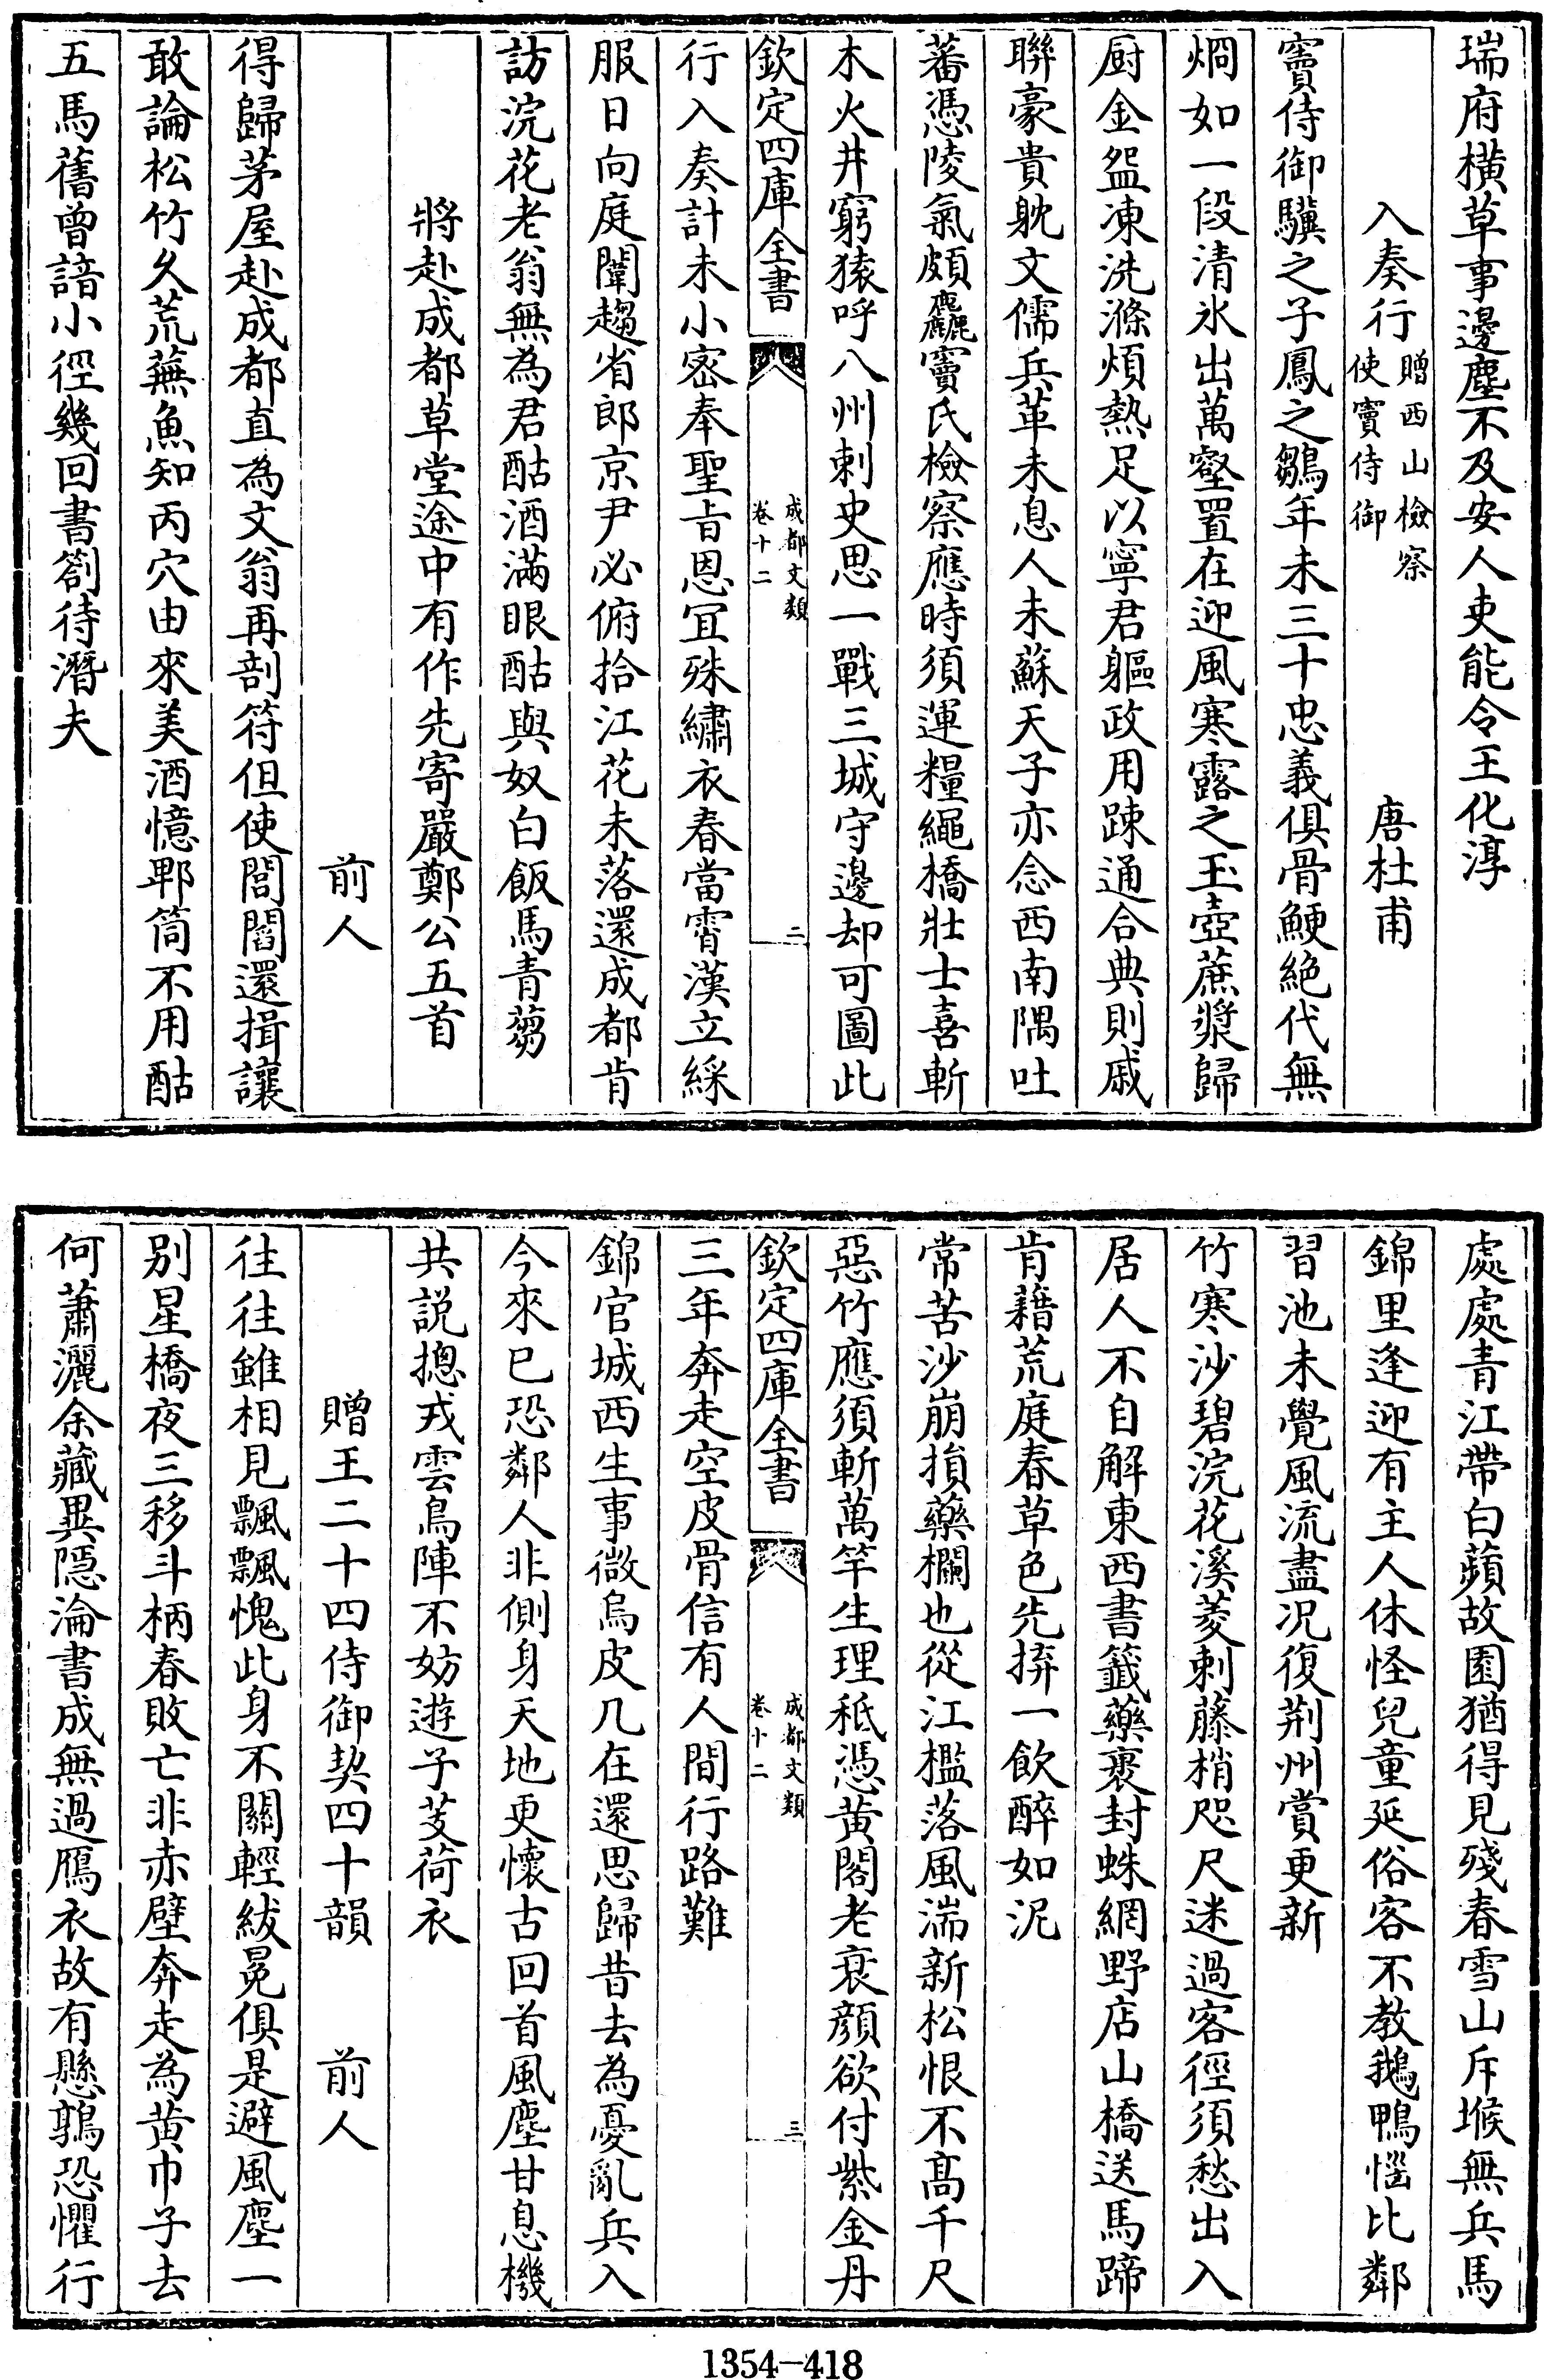 瑞府橫草事邊塵不及安人吏能令王化淳
入奏行贈西山檢察使竇侍御 唐杜甫
竇侍御驥之子鳳之鶵年未三十忠義俱骨鯁絶代無
烱如一段清氷出萬壑置在迎風寒露之玉壺蔗漿歸
厨金盌凍洗滌煩熱足以寧君軀政用踈通合典則戚
聨豪貴躭文儒兵革未息人未蘇天子亦念西南隅吐
蕃憑陵氣頗麤竇氏檢察應時須運糧繩橋壯士喜斬
木火井窮猿呼八州刺史思一戰三城守邊却可圖此
欽定四庫全書 成都文類卷十二 二
行入奏計未小密奉聖旨恩宜殊繡衣春當霄漢立綵
服日向庭闈趨省郎京尹必俯拾江花未落還成都肯
訪浣花老翁無為君酤酒滿眼酤與奴白飯馬青蒭
將赴成都草堂途中有作先寄嚴鄭公五首
前人
得歸茅屋赴成都直為文翁再剖符但使閭閻還揖讓
敢論松竹久荒蕪魚知丙穴由來美酒憶郫筒不用酤
五馬舊曾諳小徑幾回書劄待潛夫
處處青江帶白蘋故園猶得見殘春雪山斥堠無兵馬
錦里逢迎有主人休怪兒童延俗客不教鵝鴨惱比鄰
習池未覺風流盡况復荆州賞更新
竹寒沙碧浣花溪菱刺藤梢咫尺迷過客徑須愁出入
居人不自解東西書籤藥裹封蛛網野店山橋送馬蹄
肯藉荒庭春草色先拚一飲醉如泥
常苦沙崩損藥欄也從江檻落風湍新松恨不髙千尺
惡竹應須斬萬竿生理秪憑黄閣老衰顔欲付紫金丹
欽定四庫全書 成都文類卷十二 三
三年奔走空皮骨信有人間行路難
錦官城西生事微烏皮几在還思歸昔去為憂亂兵入
今來已恐鄰人非側身天地更懷古回首風塵甘息機
共説摠戎雲鳥陣不妨遊子芰荷衣
贈王二十四侍御契四十韻 前人
往往雖相見飄飄愧此身不關輕紱冕俱是避風塵一
别星橋夜三移斗柄春敗亡非赤壁奔走為黄巾子去
何蕭灑余藏異隱淪書成無過鴈衣故有懸鶉恐懼行
1354-418